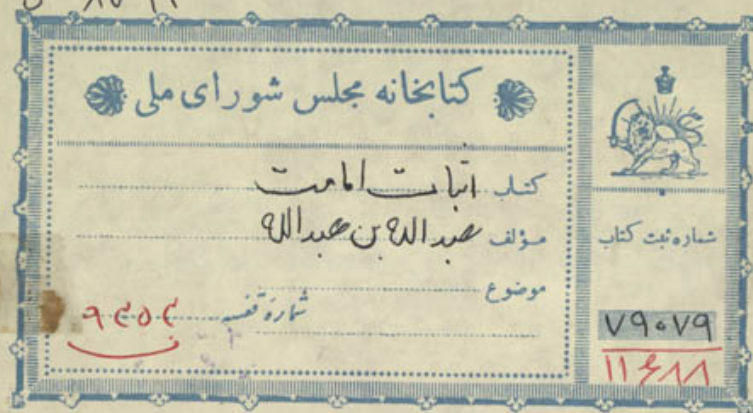 کتابخانه مجلس شورای ملی
کتاب اثبات امامت
مؤلف عبدالله بن عبدالله
موضوع
شماره قفسه
شماره ثبت کتاب
۷۹۰۷۹
۱۱۴۸۸